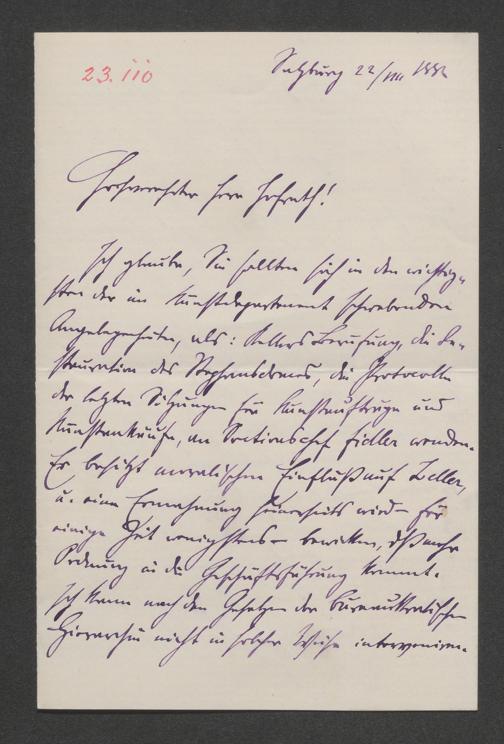 23.110
Salzburg 22/VIII 1882
Hochverehrter Herr Hofrath!
Ich glaube, Sie sollten sich in den wichtig-
sten der im Kunstdepartement schwebenden
Angelegenheiten, als: Berufung, die Re-
stauration des Stephansdomes, die Protocolle
der letzten Sitzungen für Kunstaufträge und
Kunstankäufe, an Sectionschef Fidler wenden.
Er besitzt moralischen Einfluß auf Zeller,
u. eine Ermahnung seinerseits wird – für
einige Zeit wenigstens – bewirken, daß mehr
Ordnung in die Geschäftsführung kommt.
Ich kann nach den Gesetzen der bureaukratischen
Hierarchie nicht in solcher Weise interveniren.